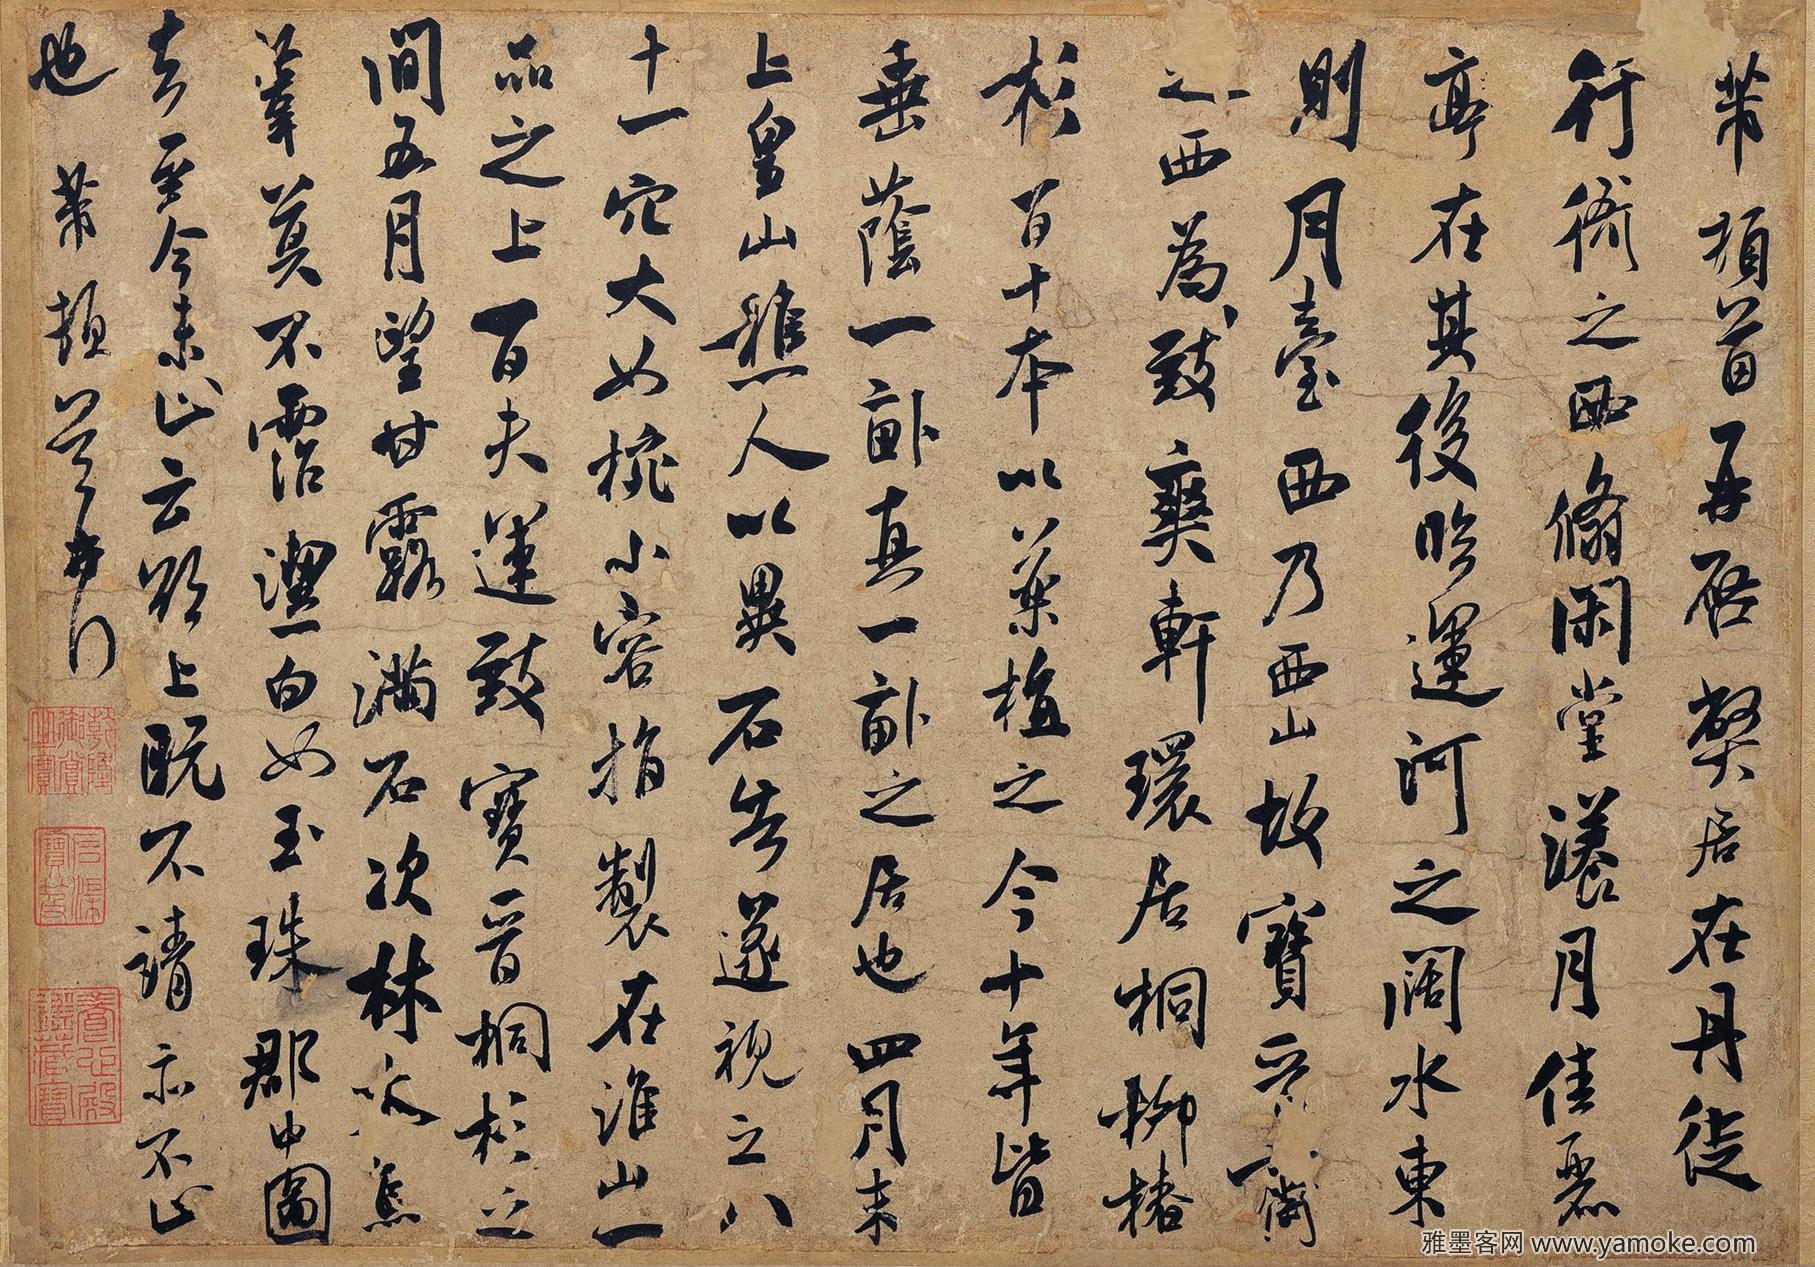 芾頓首再啟弊居在丹徒
行衙之西翛閑堂漾月佳麗
亭在其後臨運河之闊水東
則月臺西乃西山故寶晉齋
之西為致爽軒環居桐柳椿
杉百十本以藥植之今十年皆
垂蔭一畝真一畝之居也四月末
上皇山樵人以異石告遂視之八
十一穴大如椀小容指製在淮山一
品之上百夫運致寶晉桐杉之
間五月望甘露滿石次林焦
葦莫不霑潔白如玉珠郡中圖
去至今未止云欲上既不請亦不止
也芾頓首再拜
乾隆御賞之寶
石渠寶笈
養心殿鑑藏寶
雅墨客网 www.yamoke.com